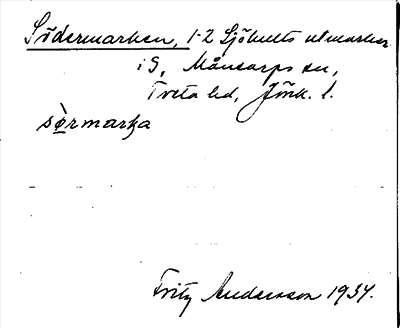 Södermarken, 1-2 Sjöhults utmarker
i S, Månsarps sn,
Tveta hd, Jönk. l.
sè̱rmarka
Fritz Andersson 1934.